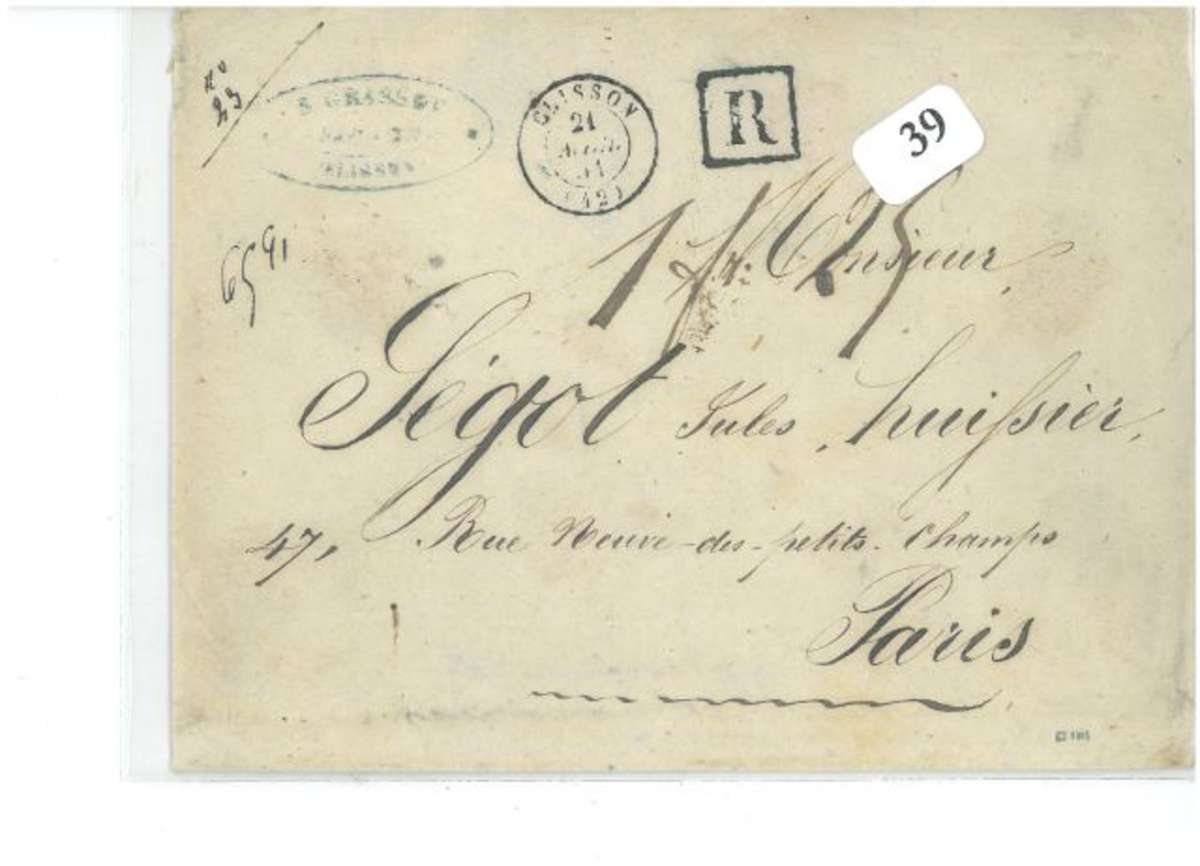 No 23
S. GRASSOU
CLISSON
CLISSON
21
AVRIL
51
(42)
R
39
65 91
1 fr. 25
Monsieur
Ségot Jules, huissier,
47, Rue Neuve-des-petits-Champs
Paris